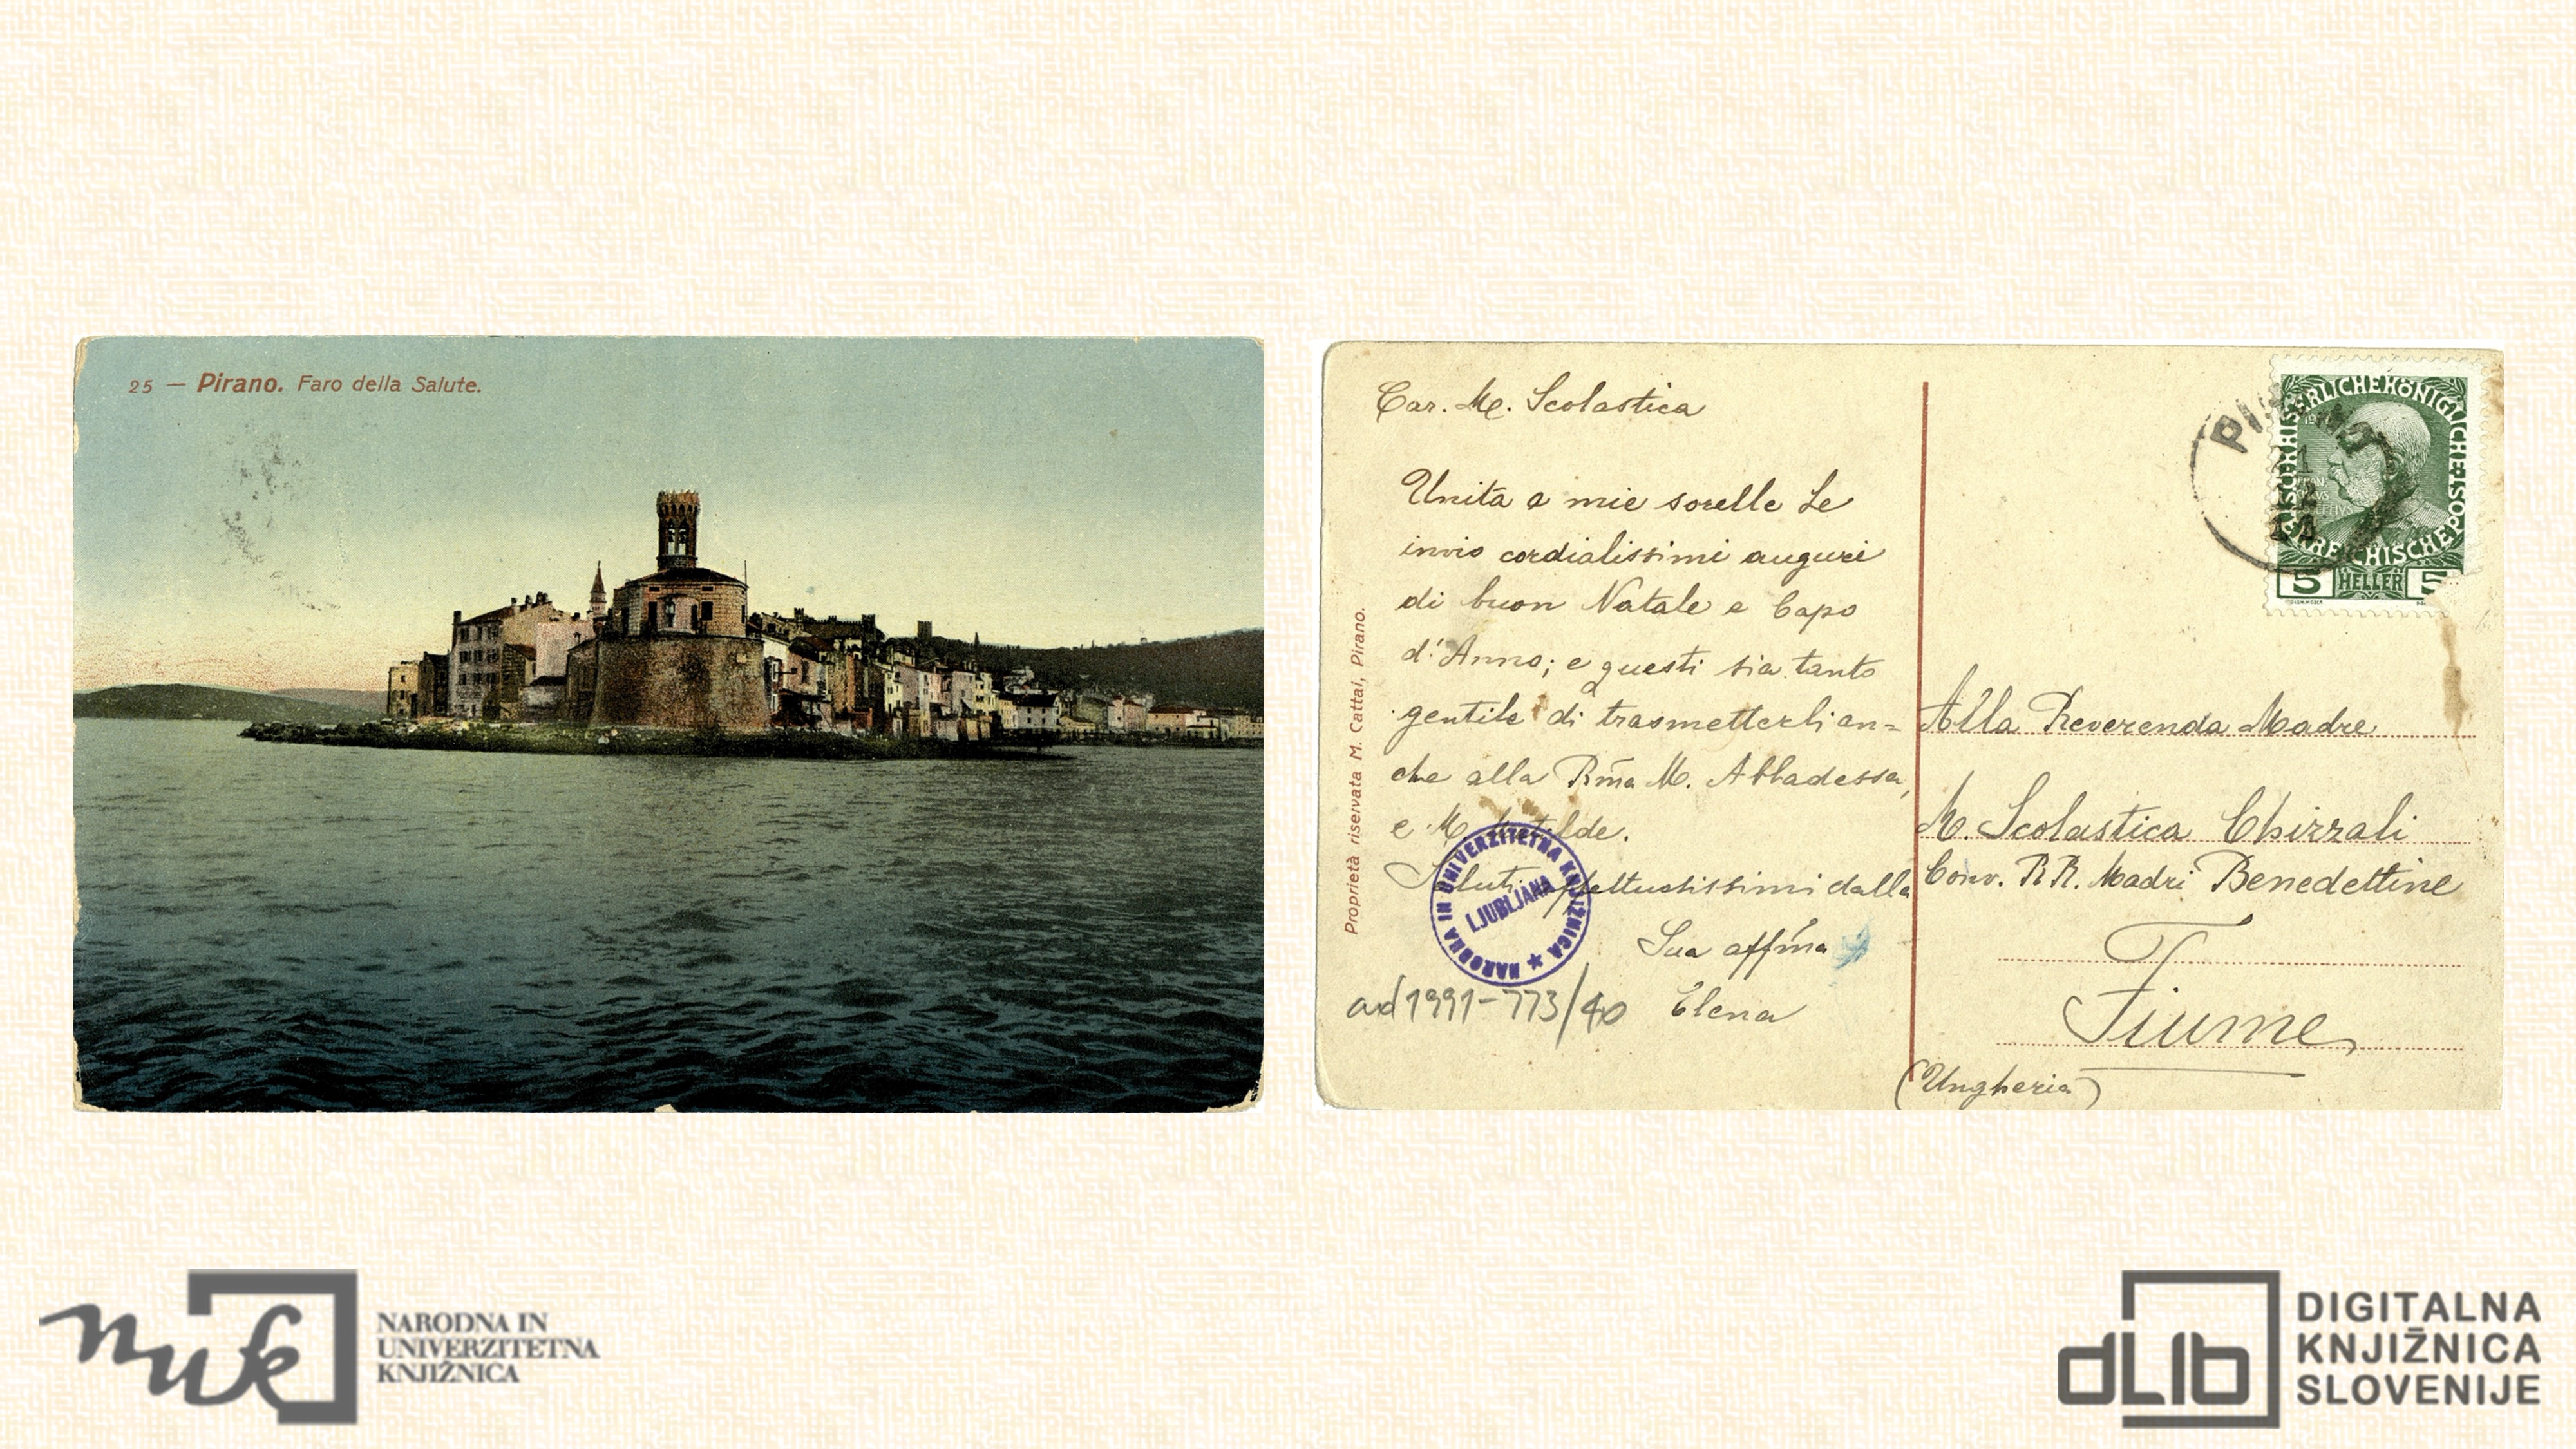 25 — Pirano. Faro della Salute.
Car. M. Scolastica
Unita a mie sorelle Le
invio cordialissimi auguri
di buon Natale e Capo
d'Anno; e questi sia tanto
gentile di trasmetterli an=
che alla Rma M. Abbadessa,
e M.
Saluti affettuosissimi dalla
Sua affma
Elena
ad 1991-773/40
Proprietà riservata M. Cattai, Pirano.
NARODNA IN UNIVERZITETNA KNJIŽNICA
LJUBLJANA
PIRANO
KAISERLICHE KÖNIGLICHE ÖSTERREICHISCHE POST
5 HELLER 5
Alla Reverenda Madre
M. Scolastica Chizzali
Conv. RR. Madri Benedettine
Fiume
(Ungheria)
nuk
NARODNA IN
UNIVERZITETNA
KNJIŽNICA
dLib
DIGITALNA
KNJIŽNICA
SLOVENIJE